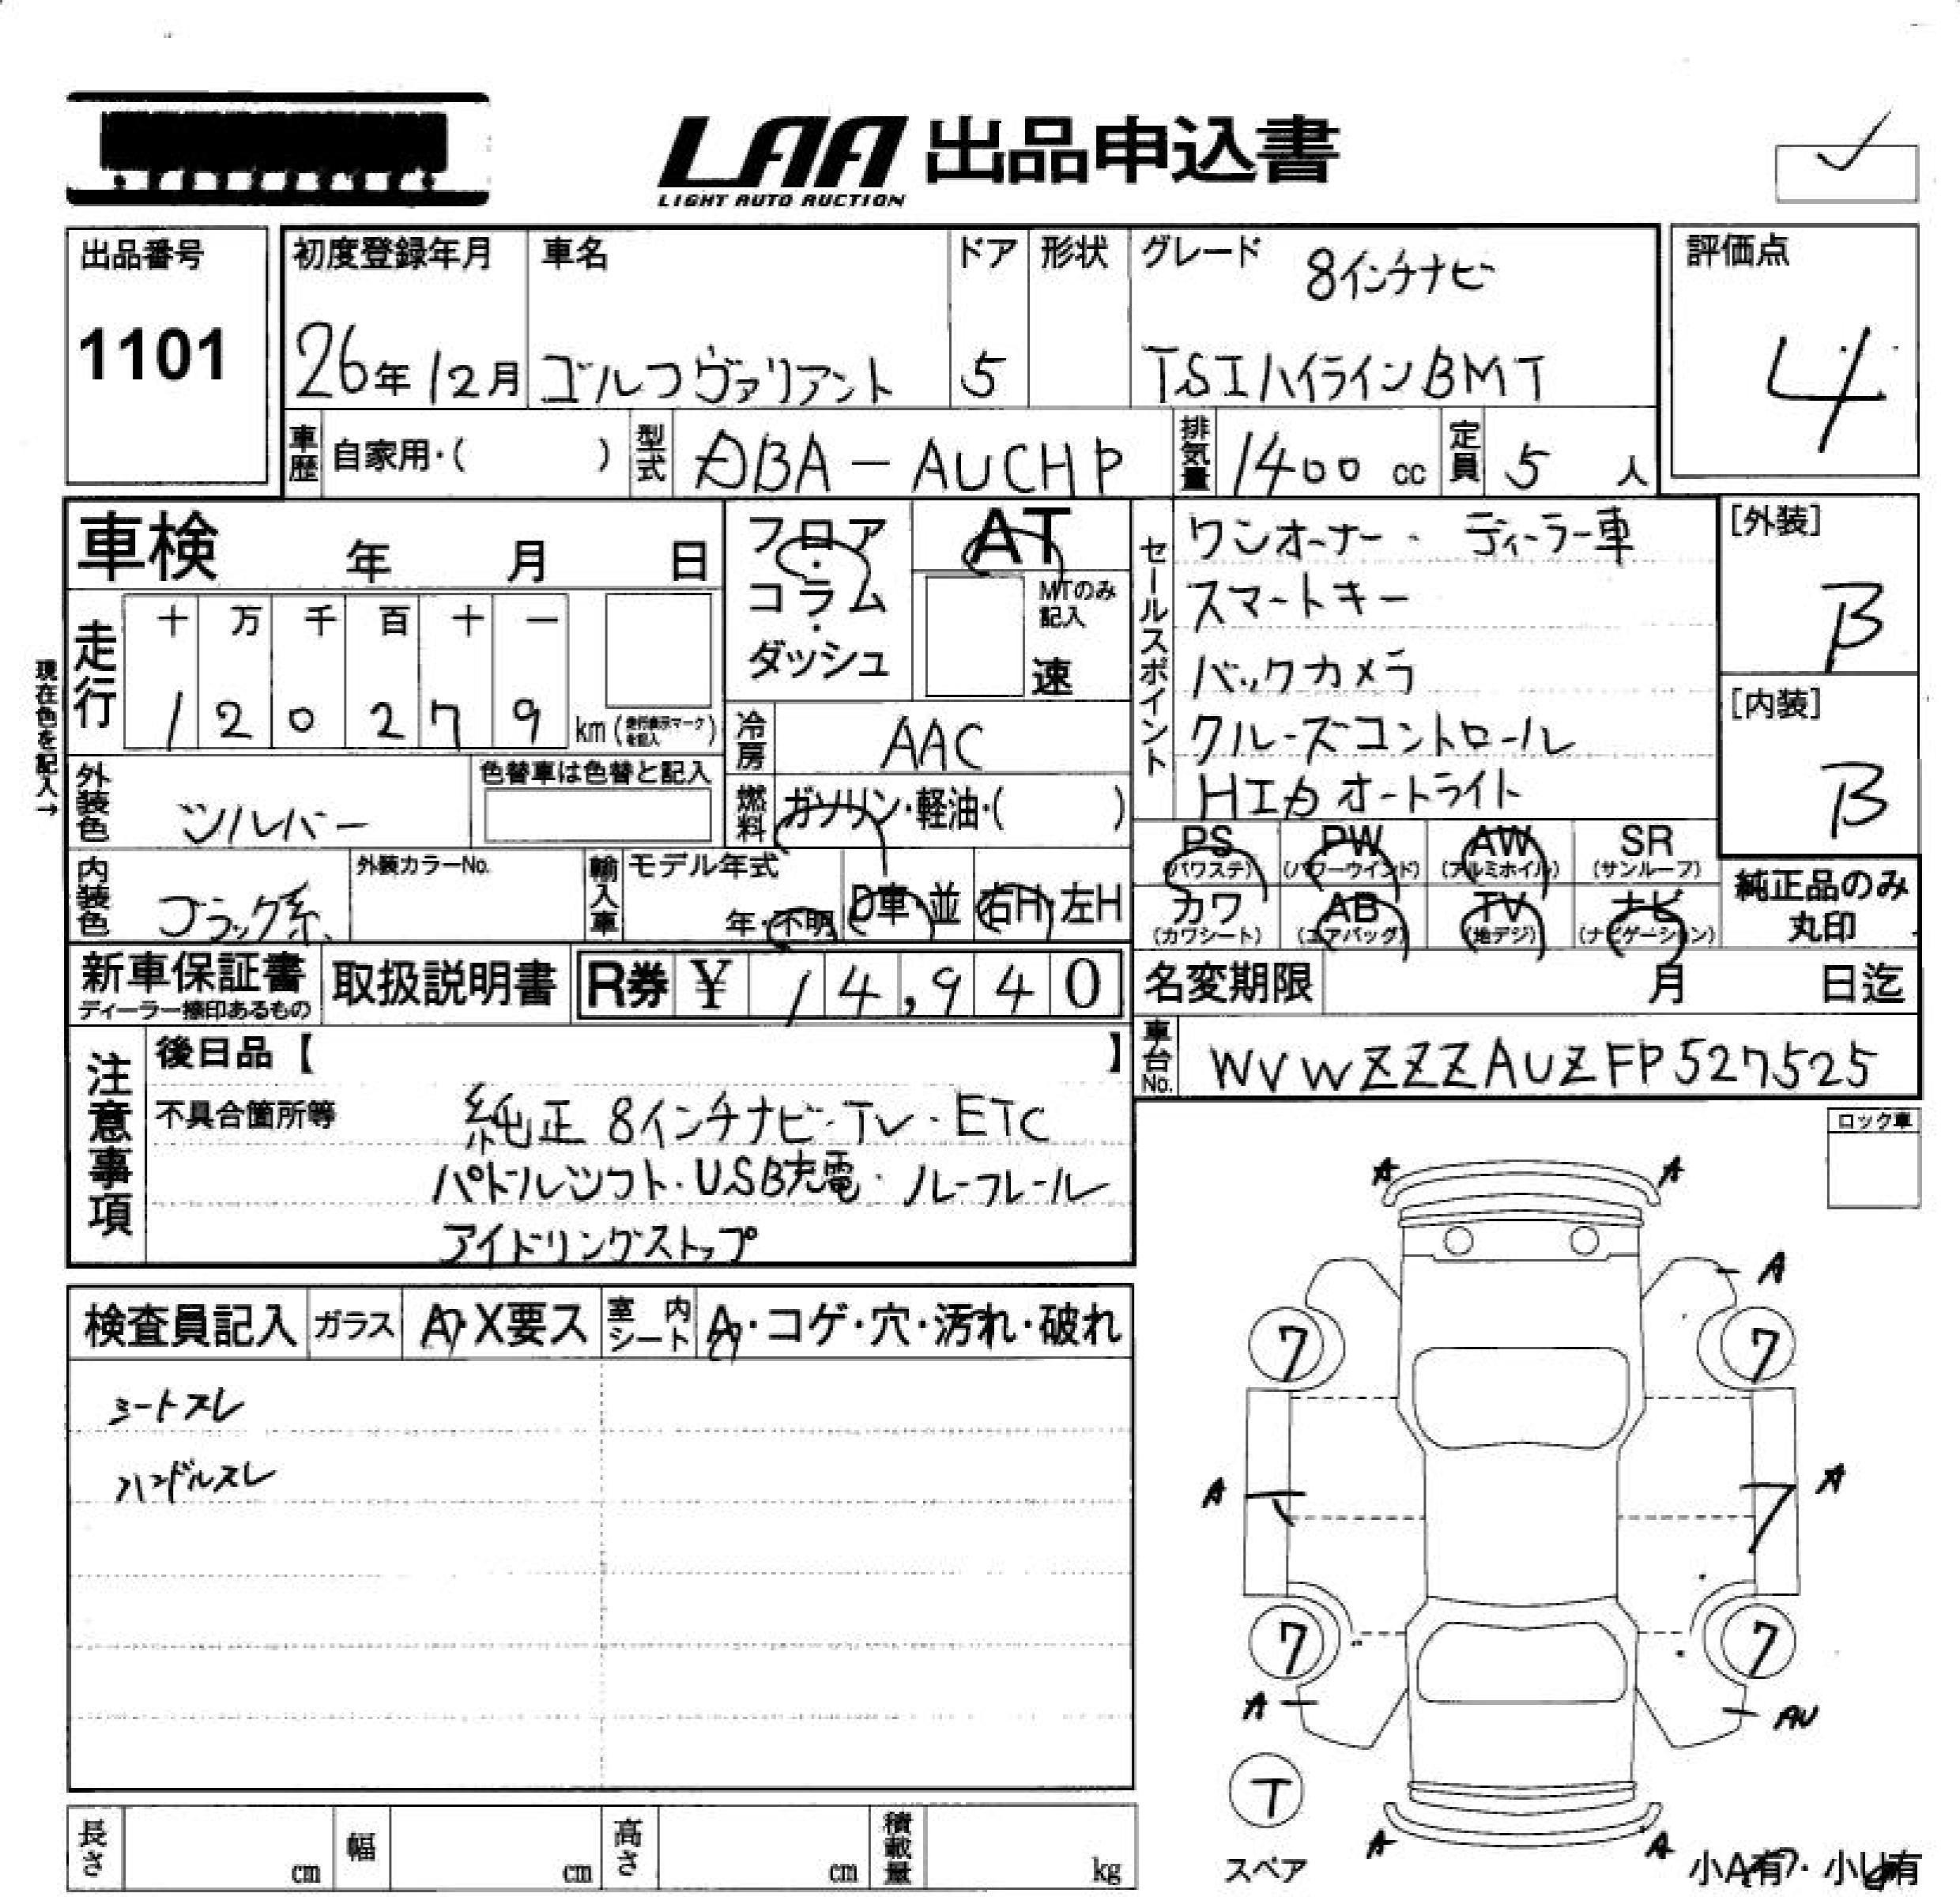 LAA 出品申込書
LIGHT AUTO AUCTION
出品番号
1101
初度登録年月 車名 ドア 形状 グレード 8インチナビ
26年12月 ゴルフヴァリアント 5 TSIハイラインBMT
評価点
4
車歴 自家用・( ) 型式 DBA-AUCHP 排気量 1400 cc 定員 5 人
車検 年 月 日
フロア・コラム・ダッシュ
AT
MTのみ記入
速
現在色を記入→
走行 十 万 千 百 十 一
1 2 0 2 7 9 km (走行表示マークを記入)
冷房 AAC
外装色 シルバー 色替車は色替と記入
燃料 ガソリン・軽油・( )
内装色 ブラック系 外装カラーNo. 輸入車 モデル年式
年・不明 D車・並 右H・左H
セールスポイント
ワンオーナー・ディーラー車
スマートキー
バックカメラ
クルーズコントロール
HID オートライト
[外装]
B
[内装]
B
PS (パワステ) PW (パワーウインド) AW (アルミホイル) SR (サンルーフ)
カワ (カワシート) AB (エアバッグ) TV (地デジ) ナビ (ナビゲーション)
純正品のみ
丸印
新車保証書
ディーラー捺印あるもの
取扱説明書 R券 ¥ 14,940
名変期限 月 日迄
車台No. WVWZZZAUZFP527525
注意事項
後日品【 】
不具合箇所等
純正 8インチナビ・TV・ETC
パドルシフト・USB充電・ルーフレール
アイドリングストップ
ロック車
検査員記入 ガラス A・X要ス 室内シート A・コゲ・穴・汚れ・破れ
シートスレ
ハンドルスレ
A A
A
7 7
A A
7 7
A AU
T
スペア
A A
小A有・小U有
長さ cm 幅 cm 高さ cm 積載量 kg